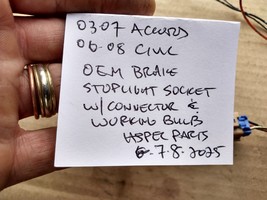 03-07 ACCORDS
06-08 CIVIC
OEM BRAKE
STOPLIGHT SOCKET
W/CONNECTOR &
WORKING BULB
HSPEC PARTS
6-7.8.2025